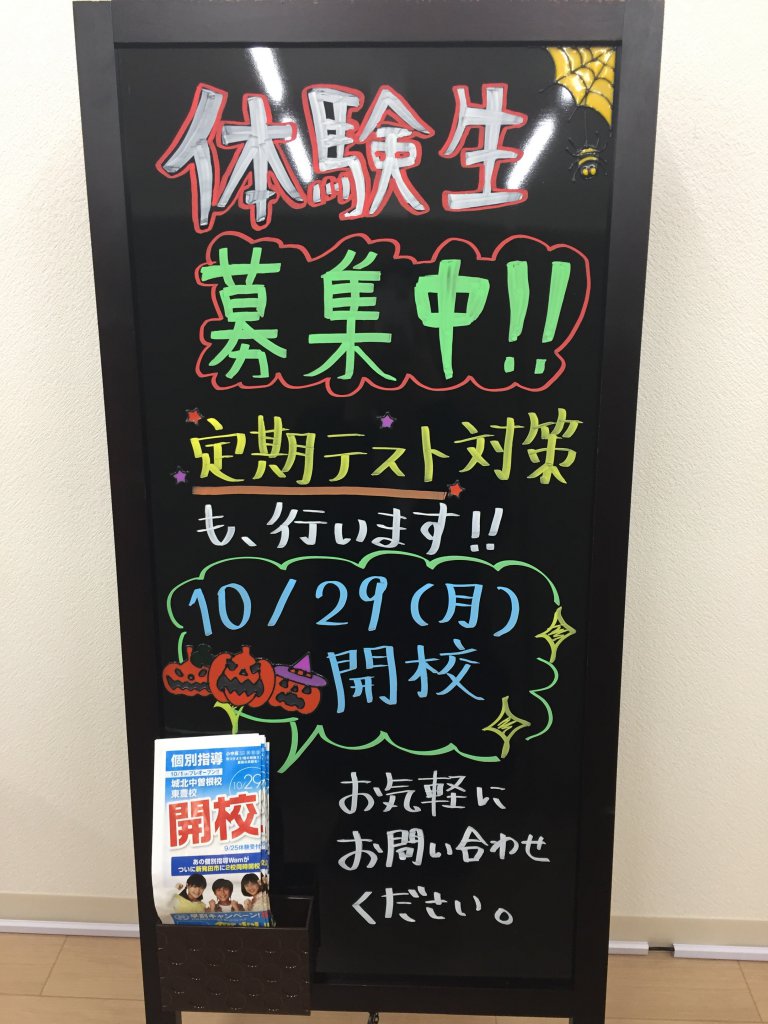 体験生
募集中!!
定期テスト対策
も、行います!!
10/29(月)
開校
お気軽に
お問い合わせ
ください。
個別指導
城北中曽根校
東豊校
10/29
開校
9/25体験受付
あの個別指導Wamが
ついに新発田市に2校同時開校
早割キャンペーン